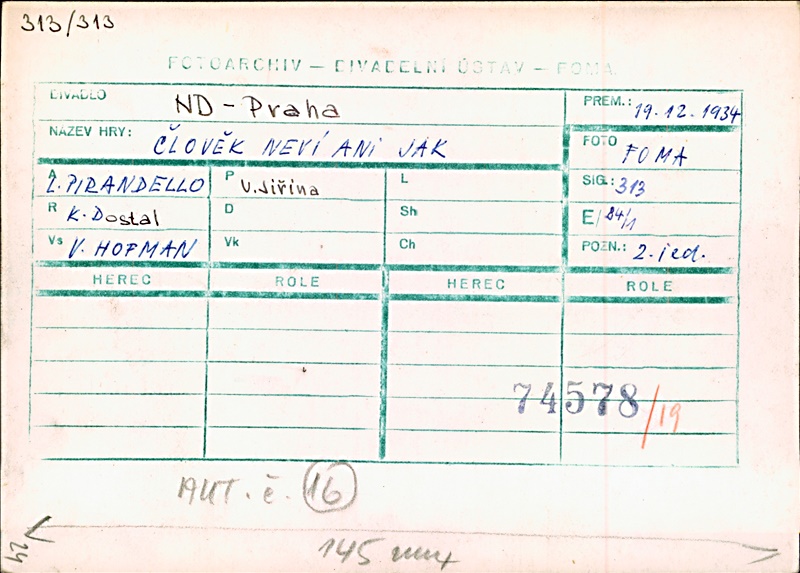 313/313
FOTOARCHIV — DIVADELNÍ ÚSTAV — FOMA
DIVADLO ND - Praha PREM.: 19.12.1934
NÁZEV HRY: ČLOVĚK NEVÍ ANI JAK FOTO FOMA
A L. PIRANDELLO P V. Jiřina L SIG.: 313
R K. Dostal D Sh E/84/1
Vs V. HOFMAN Vk Ch POZN.: 2. jed.
HEREC ROLE HEREC ROLE
74578/19
AUT. č. 16
145 mm